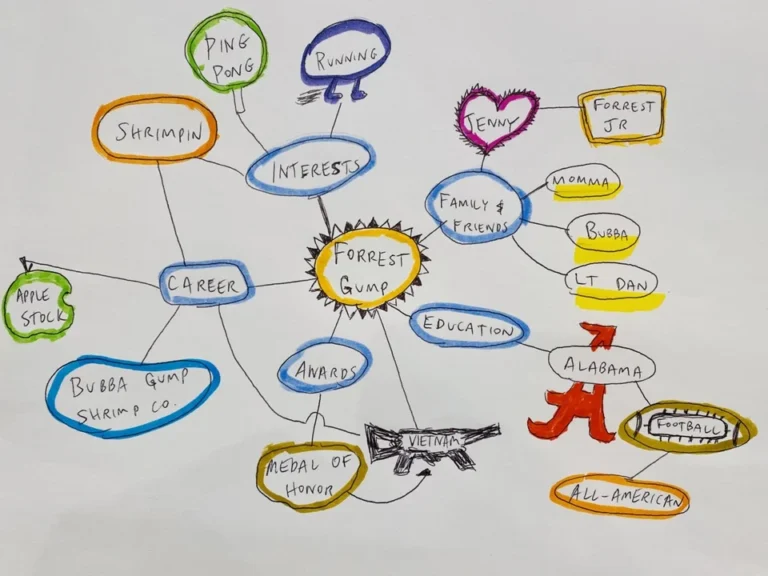 PING
PONG
RUNNING
SHRIMPIN
INTERESTS
JENNY
FORREST
JR
FAMILY &
FRIENDS
MOMMA
BUBBA
LT DAN
FORREST
GUMP
CAREER
APPLE
STOCK
BUBBA GUMP
SHRIMP CO.
AWARDS
EDUCATION
ALABAMA
FOOTBALL
ALL-AMERICAN
VIETNAM
MEDAL OF
HONOR